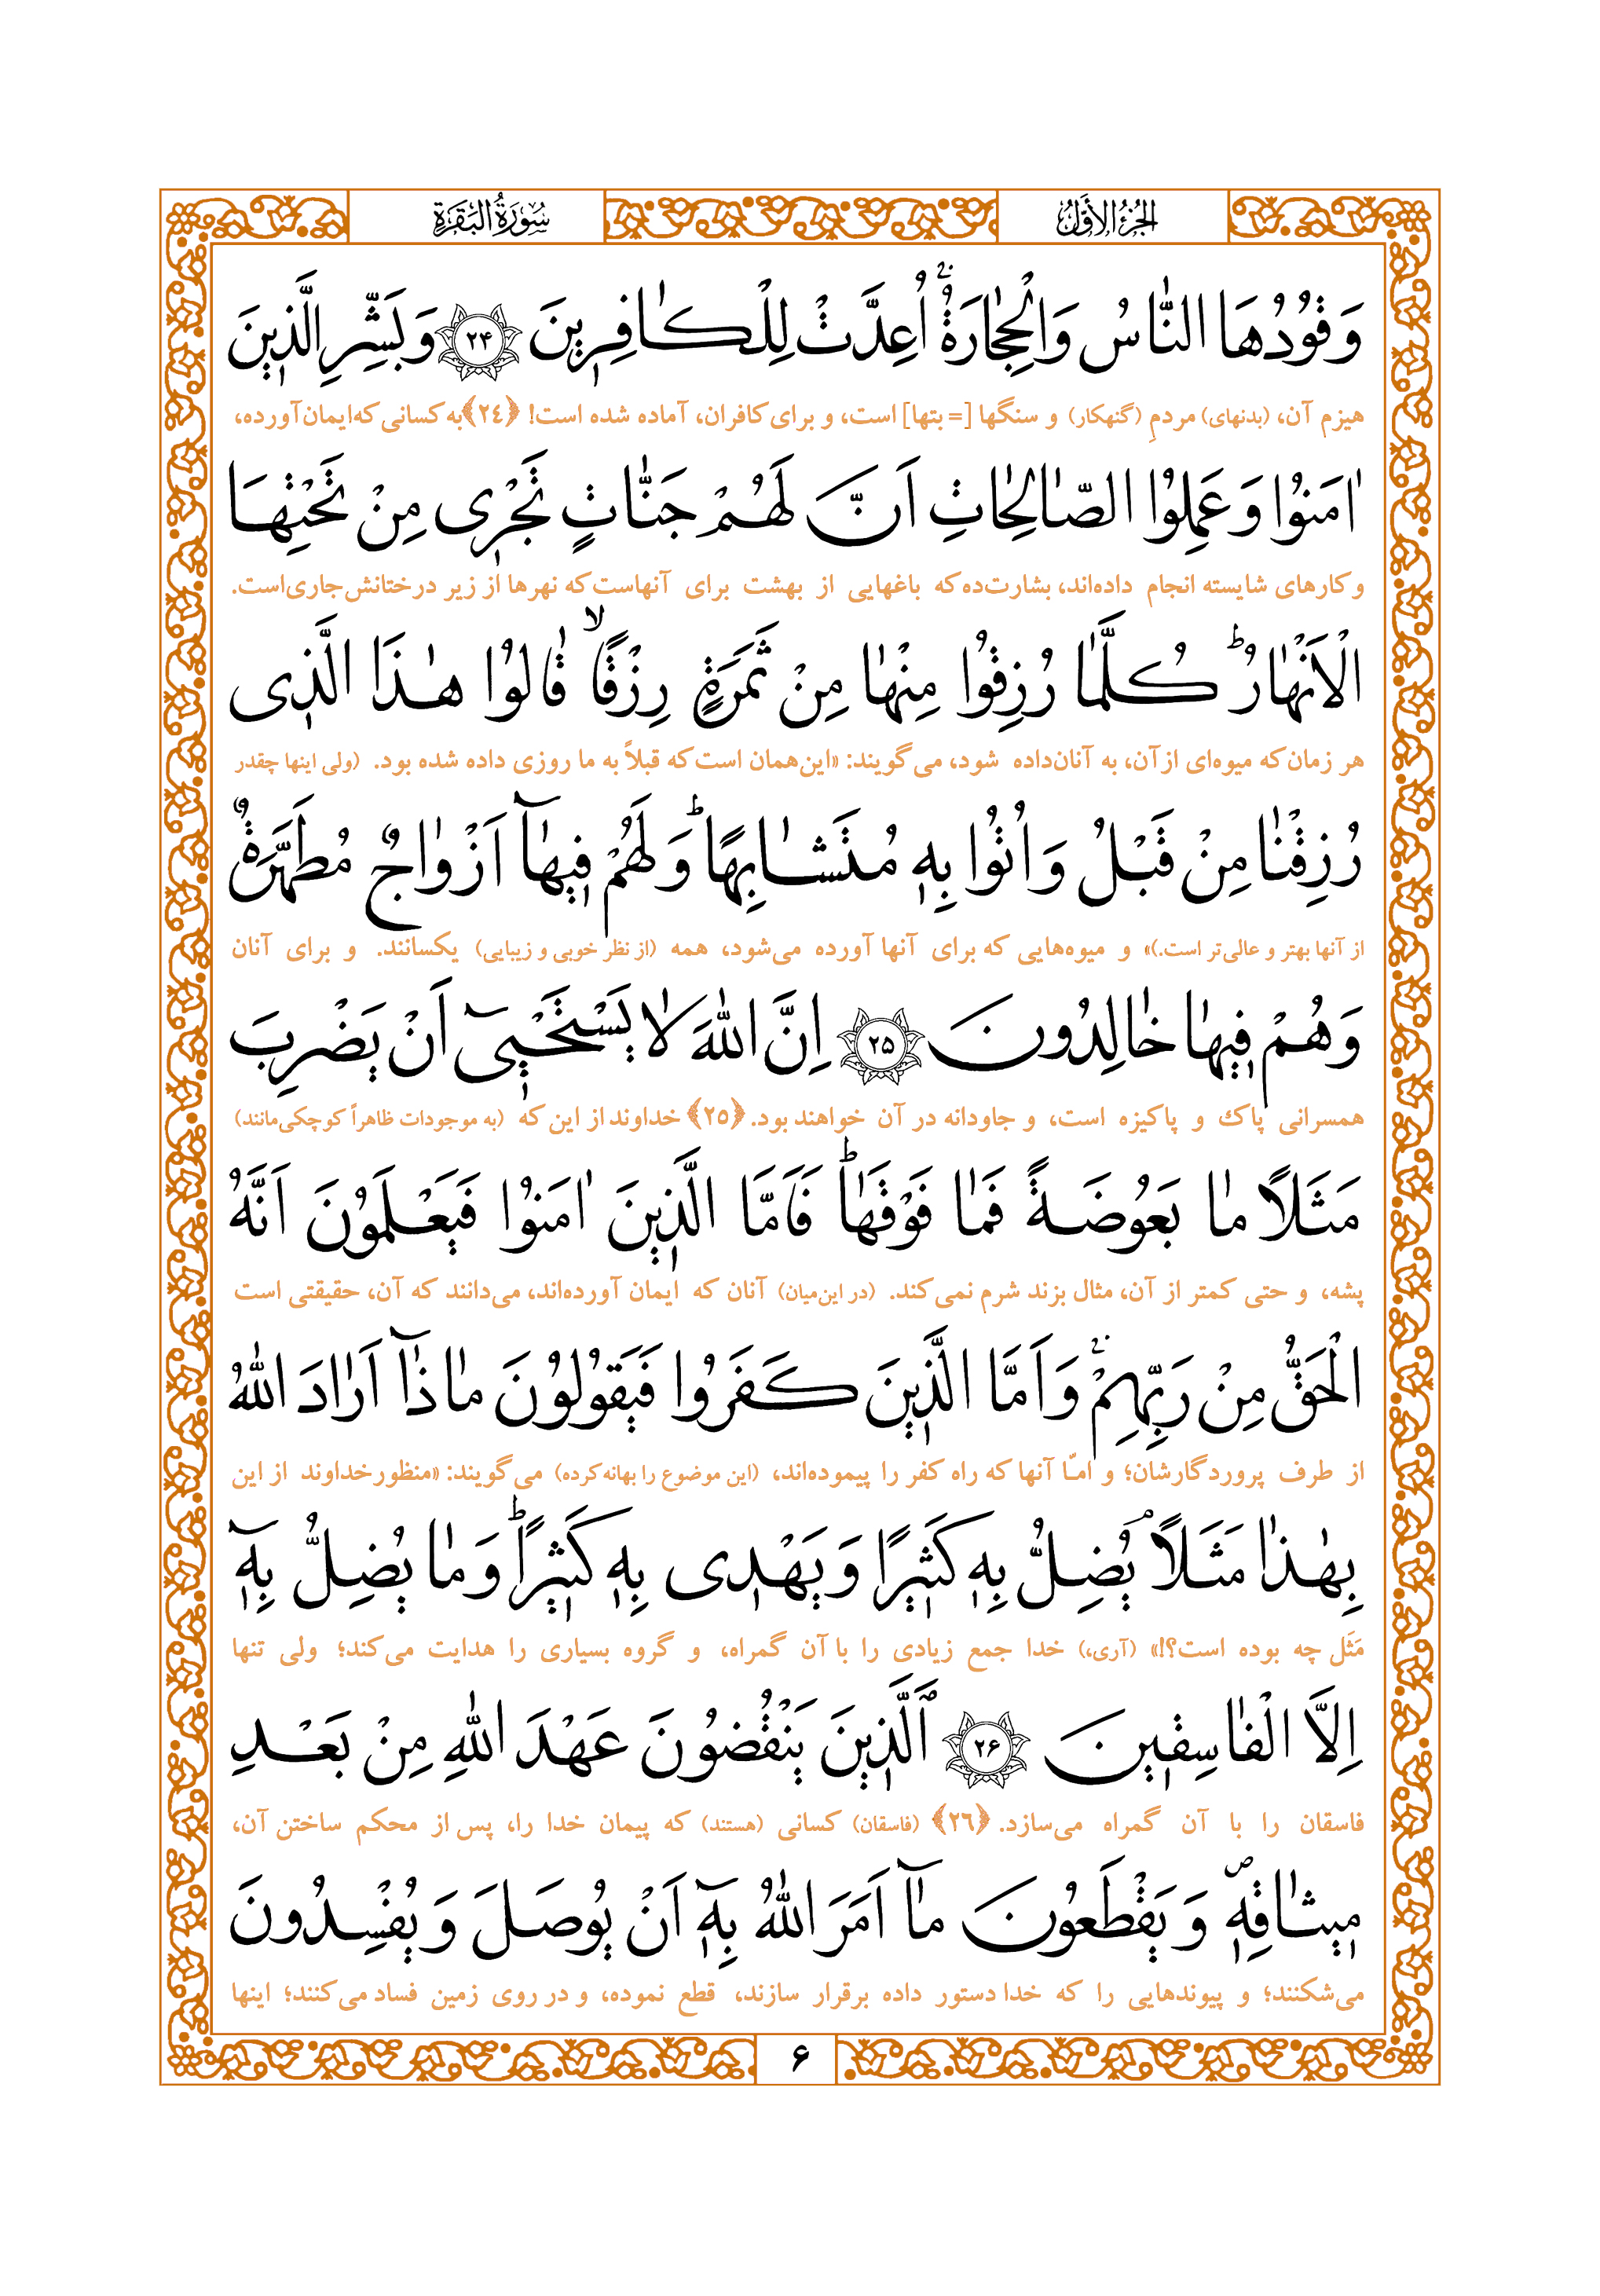 الجُزءُ الأوَّلُ
سُورَةُ البَقَرَةِ
وَقُودُهَا النّٰاسُ وَالْحِجٰارَةُ ۖ اُعِدَّتْ لِلْكٰافِرِينَ ﴿۲۴﴾ وَبَشِّرِ الَّذِينَ
هیزم آن، (بدنهای) مردمِ (گنهکار) و سنگها [= بتها] است، و برای کافران، آماده شده است! ﴿٢٤﴾ به کسانی که ایمان آورده،
اٰمَنُوا وَعَمِلُوا الصّٰالِحٰاتِ اَنَّ لَهُمْ جَنّٰاتٍ تَجْرِي مِنْ تَحْتِهَا
و کارهای شایسته انجام داده‌اند، بشارت ده که باغهایی از بهشت برای آنهاست که نهرها از زیر درختانش جاری است.
الْاَنْهٰارُ ۖ كُلَّمٰا رُزِقُوا مِنْهٰا مِنْ ثَمَرَةٍ رِزْقًا ۙ قٰالُوا هٰذَا الَّذِي
هر زمان که میوه‌ای از آن، به آنان داده شود، می‌گویند: «این همان است که قبلاً به ما روزی داده شده بود. (ولی اینها چقدر
رُزِقْنٰا مِنْ قَبْلُ وَاُتُوا بِهِ مُتَشٰابِهًا ۖ وَلَهُمْ فِيهٰآ اَزْوٰاجٌ مُطَهَّرَةٌ
از آنها بهتر و عالی‌تر است.)» و میوه‌هایی که برای آنها آورده می‌شود، همه (از نظر خوبی و زیبایی) یکسانند. و برای آنان
وَهُمْ فِيهٰا خٰالِدُونَ ﴿۲۵﴾ اِنَّ اللّٰهَ لٰا يَسْتَحْيِيٓ اَنْ يَضْرِبَ
همسرانی پاک و پاکیزه است، و جاودانه در آن خواهند بود. ﴿٢٥﴾ خداوند از این که (به موجودات ظاهراً کوچکی مانند)
مَثَلًا مٰا بَعُوضَةً فَمٰا فَوْقَهٰا ۚ فَاَمَّا الَّذِينَ اٰمَنُوا فَيَعْلَمُونَ اَنَّهُ
پشه، و حتی کمتر از آن، مثال بزند شرم نمی‌کند. (در این میان) آنان که ایمان آورده‌اند، می‌دانند که آن، حقیقتی است
الْحَقُّ مِنْ رَبِّهِمْ ۖ وَاَمَّا الَّذِينَ كَفَرُوا فَيَقُولُونَ مٰا ذٰآ اَرٰادَ اللّٰهُ
از طرف پروردگارشان؛ و امّا آنها که راه کفر را پیموده‌اند، (این موضوع را بهانه کرده) می‌گویند: «منظور خداوند از این
بِهٰذٰا مَثَلًا ۘ يُضِلُّ بِهِ كَثِيرًا وَيَهْدِي بِهِ كَثِيرًا ۚ وَمٰا يُضِلُّ بِهِٓ
مَثَل چه بوده است؟!» (آری،) خدا جمع زیادی را با آن گمراه، و گروه بسیاری را هدایت می‌کند؛ ولی تنها
اِلاَّ الْفٰاسِقِينَ ﴿۲۶﴾ اَلَّذِينَ يَنْقُضُونَ عَهْدَ اللّٰهِ مِنْ بَعْدِ
فاسقان را با آن گمراه می‌سازد. ﴿٢٦﴾ (فاسقان) کسانی (هستند) که پیمان خدا را، پس از محکم ساختن آن،
مِيثٰاقِهِ ۖ وَيَقْطَعُونَ مٰآ اَمَرَ اللّٰهُ بِهِٓ اَنْ يُوصَلَ وَيُفْسِدُونَ
می‌شکنند؛ و پیوندهایی را که خدا دستور داده برقرار سازند، قطع نموده، و در روی زمین فساد می‌کنند؛ اینها
۶